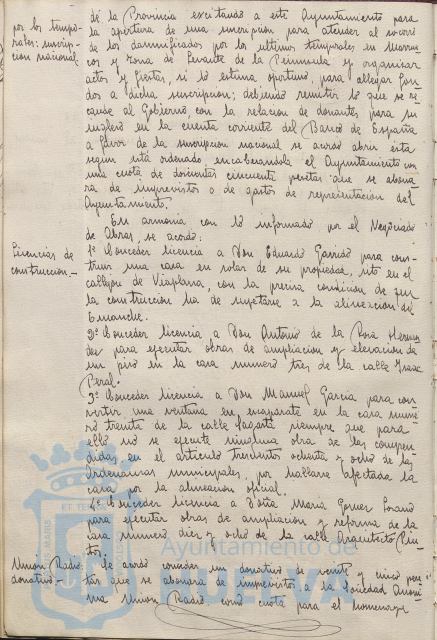 de la Provincia excitando a este Ayuntamiento para
por los tempo-
rales: suscrip-
cion nacional
la apertura de una suscripcion para atender al socorro
de los damnificados por los ultimos temporales en Marrue
cos y zona de Levante de la Peninsula y organizar
actos y fiestas, si lo estima oportuno, para allegar fon
dos a dicha suscripcion; debiendo remitir lo que se re
caude al Gobierno, con la relacion de donantes, para su
ingreso en la cuenta corriente del Banco de España
a favor de la suscripcion nacional se acordó abrir ésta
segun está ordenado, encabezandola el Ayuntamiento con
una cuota de doscientas cincuenta pesetas que se abona
ra de imprevistos o de gastos de representacion del
Ayuntamiento.
En armonia con lo informado por el Negociado
de Obras, se acordó:
Licencias de
construccion.-
1º Conceder licencia a Don Eduardo Garrido para cons-
truir una casa en solar de su propiedad, sito en el
callejon de Viaplana, con la precisa condicion de que
la construccion ha de sujetarse a la alineacion del
Ensanche.
2º Conceder licencia a Don Antonio de la Rosa Hernan
dez para ejecutar obras de ampliacion y elevacion de
un piso en la casa numero tres de la calle Isaac
Peral.
3º Conceder licencia a Don Manuel Garcia para con
vertir una ventana en escaparate en la casa nume
ro treinta de la calle Sagasta siempre que para
ello no se ejecute ninguna obra de las compren
didas en el articulo trescientos ochenta y ocho de las
Ordenanzas municipales, por hallarse afectada la
casa por la alineacion oficial.
4º Conceder licencia a Doña Maria Gomez Lozano
para ejecutar obras de ampliacion y reforma de la
casa numero diez y ocho de la calle Arquitecto Pin
to.
Union Radio:
donativo.
Se acordó conceder un donativo de veinte y cinco pese
tas que se abonará de imprevistos a la Sociedad Anoni
ma Union Radio como cuota para el homenaje
Ayuntamiento de
HUELVA